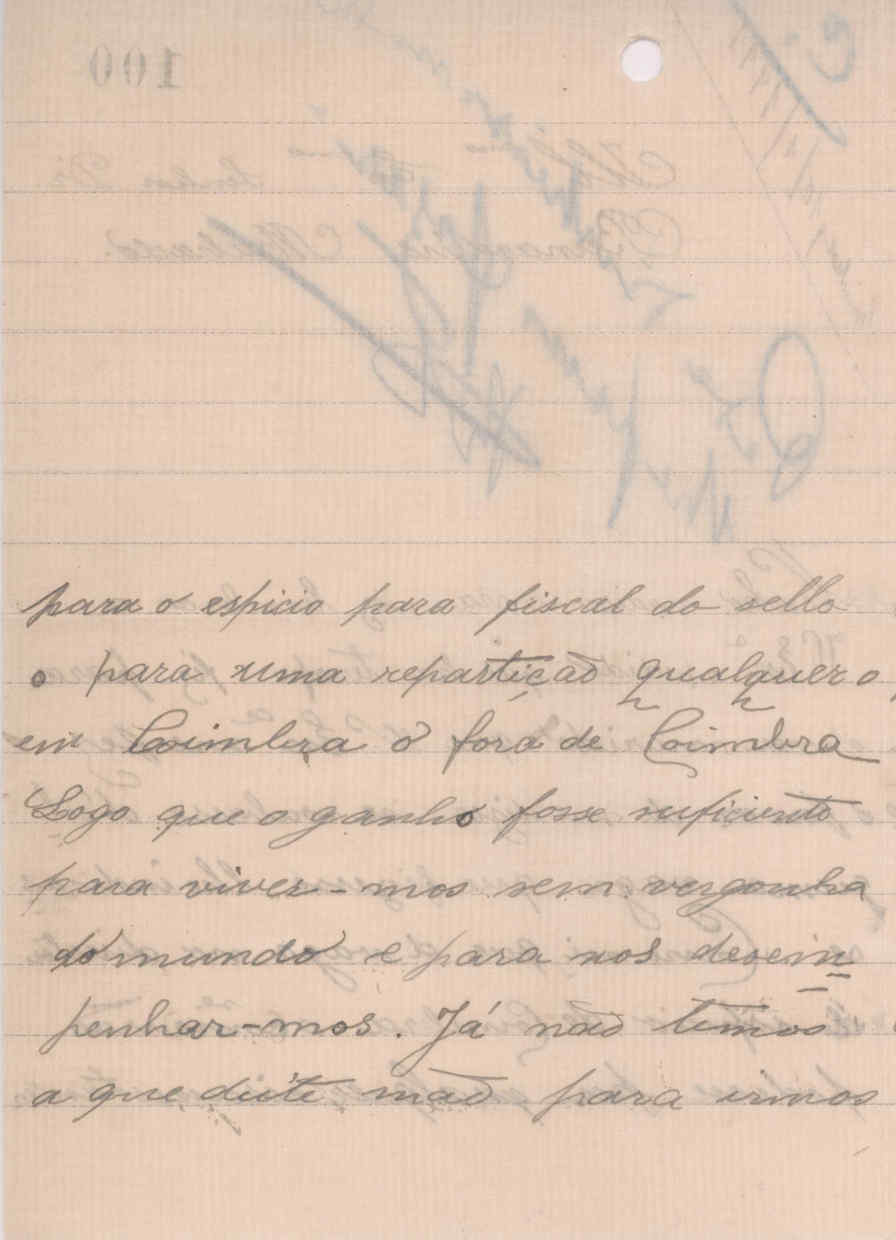 para o espicio para fiscal do sello
o para uma repartição qualquer o
em Coimbra o fóra de Coimbra
Logo que o ganho fosse suficiente
para viver-mos sem vergonha
do mundo e para nos desein
penhar-mos. Já não temos
a que deite mão para irmos
100